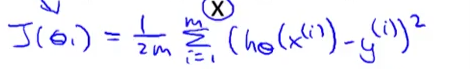 X
J(θ₁) = 1/2m Σᵢ₌₁ᵐ (hθ(x⁽ⁱ⁾) - y⁽ⁱ⁾)²